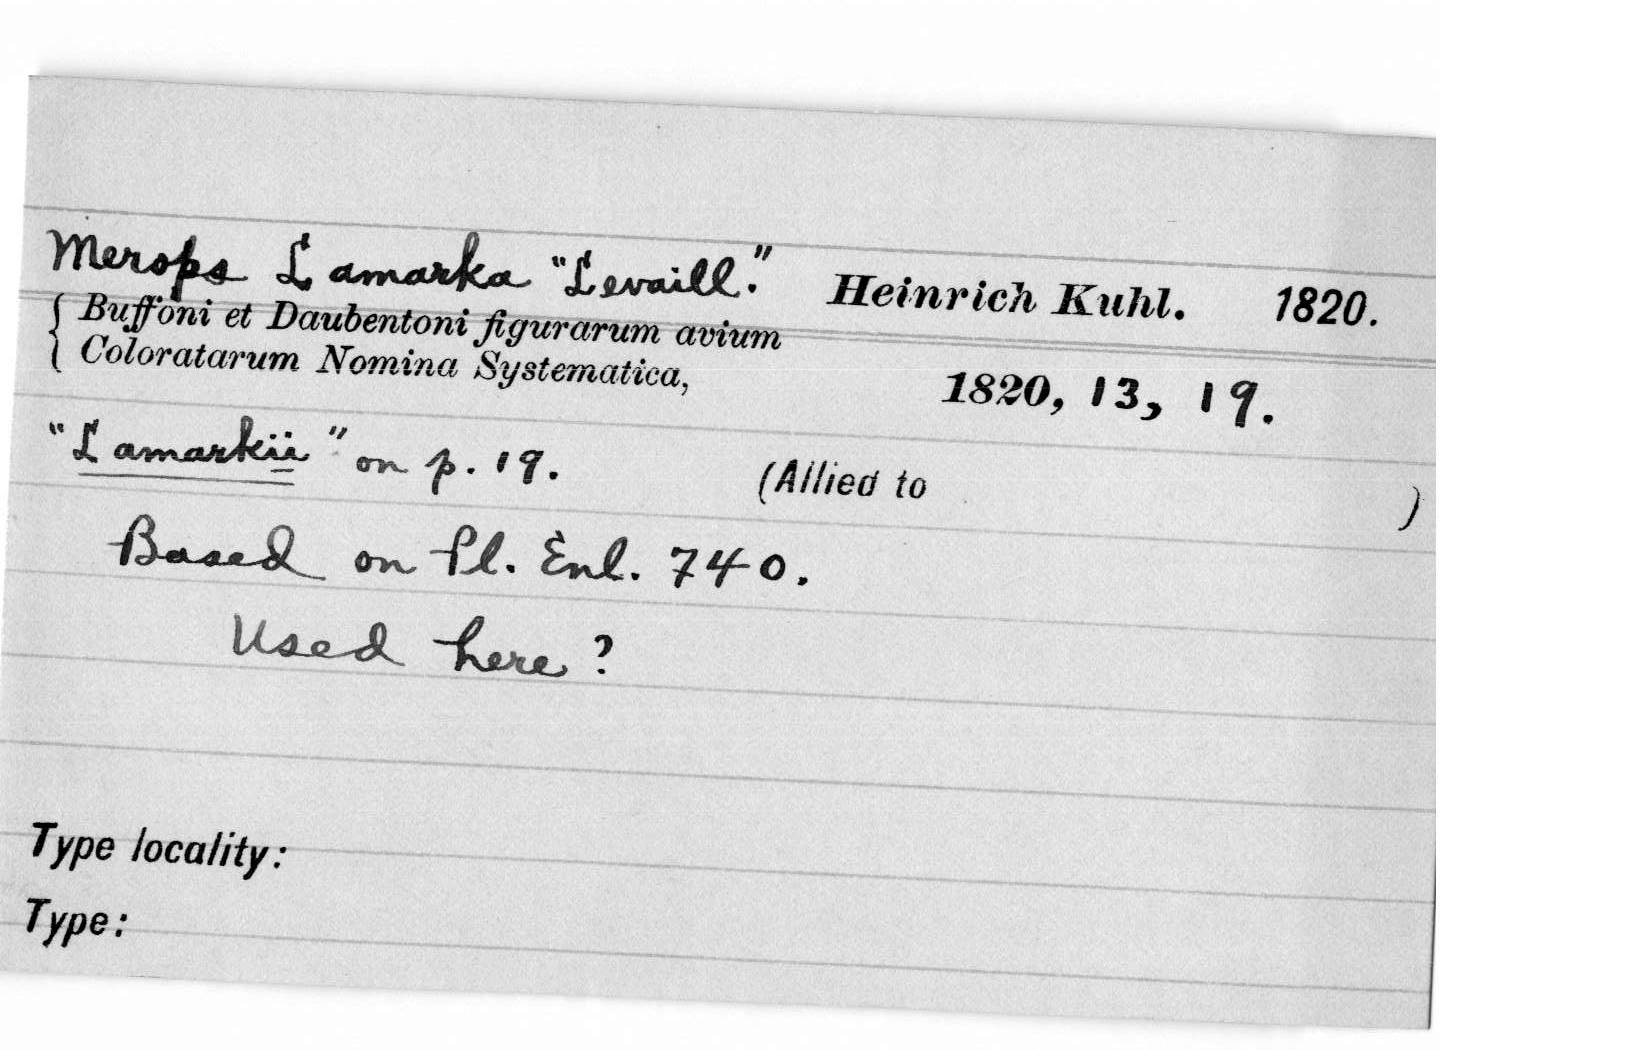 Merops Lamarka "Levaill." Heinrich Kuhl. 1820.
{ Buffoni et Daubentoni figurarum avium
{ Coloratarum Nomina Systematica, 1820, 13, 19.
"Lamarkii" on p. 19. (Allied to )
Based on Pl. Enl. 740.
Used here?
Type locality:
Type: